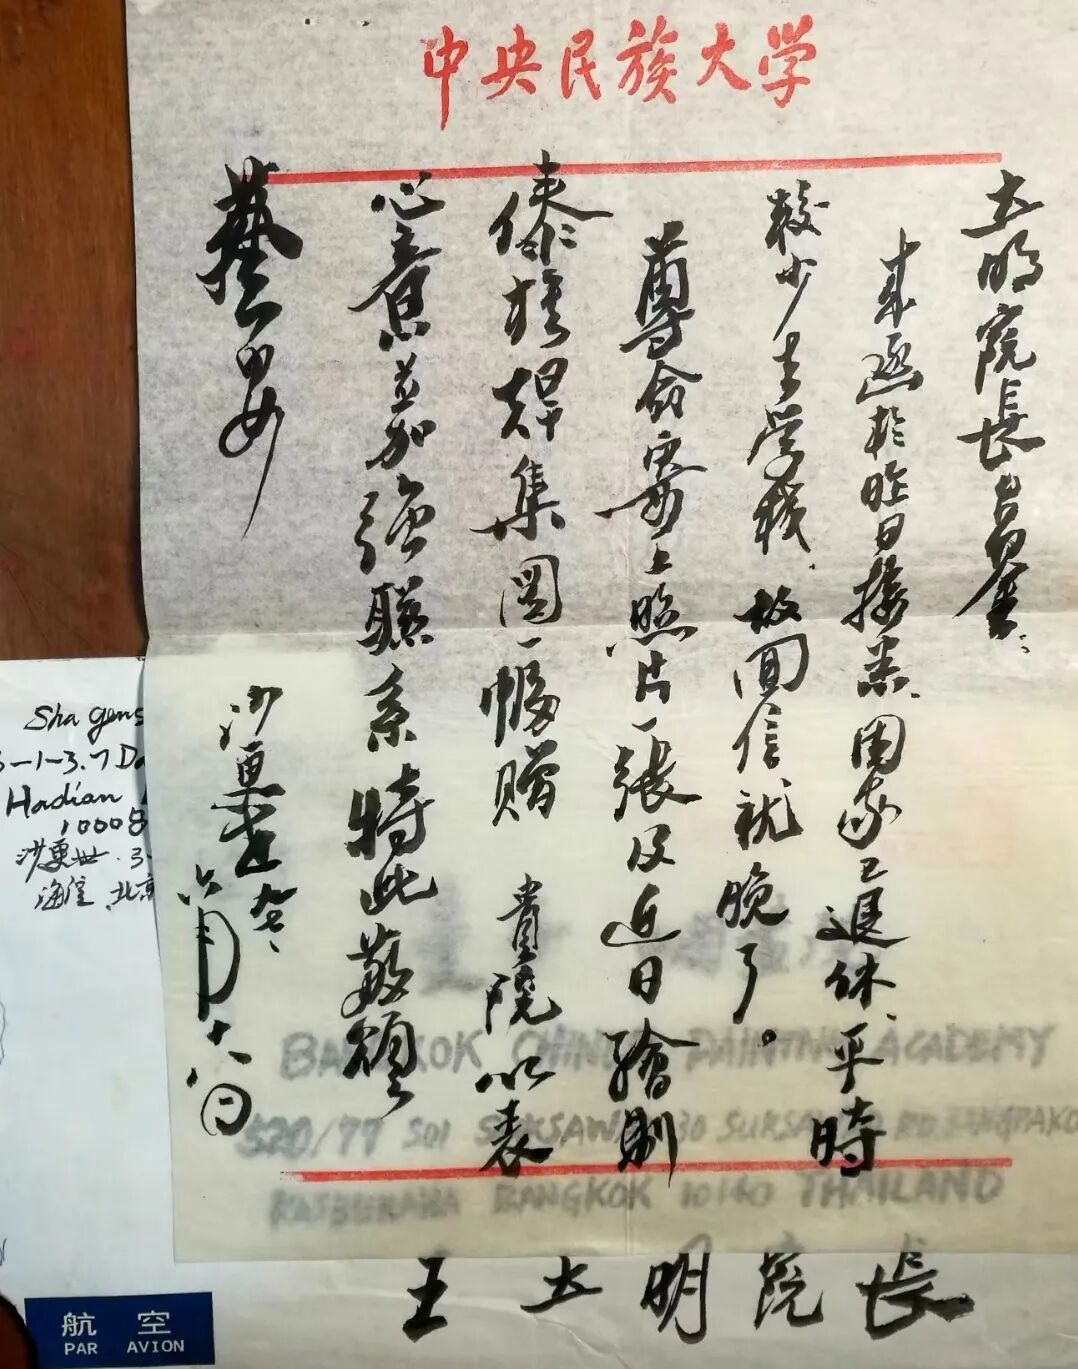 中央民族大学
王大明院長台鑒：
来函於昨日接悉、因我已退休、平時
較少去学校、故回信就晚了。
尊命寄上照片一張及近日繪制
傣族趕集圖一幅贈 貴院以表
心意並加强聯系特此敬頌
藝安
沙更世 九七、
六月十八日
Sha Gens
3-1-3.7 Da
Hadian
10008
沙更世．3-
海淀 北京
BANGKOK CHINESE PAINTING ACADEMY
520/77 SOI SUKSAWAD 30 SUKSAWAD RD BANGPAKO
RATBURANA BANGKOK 10140 THAILAND
王大明院長
航空
PAR AVION